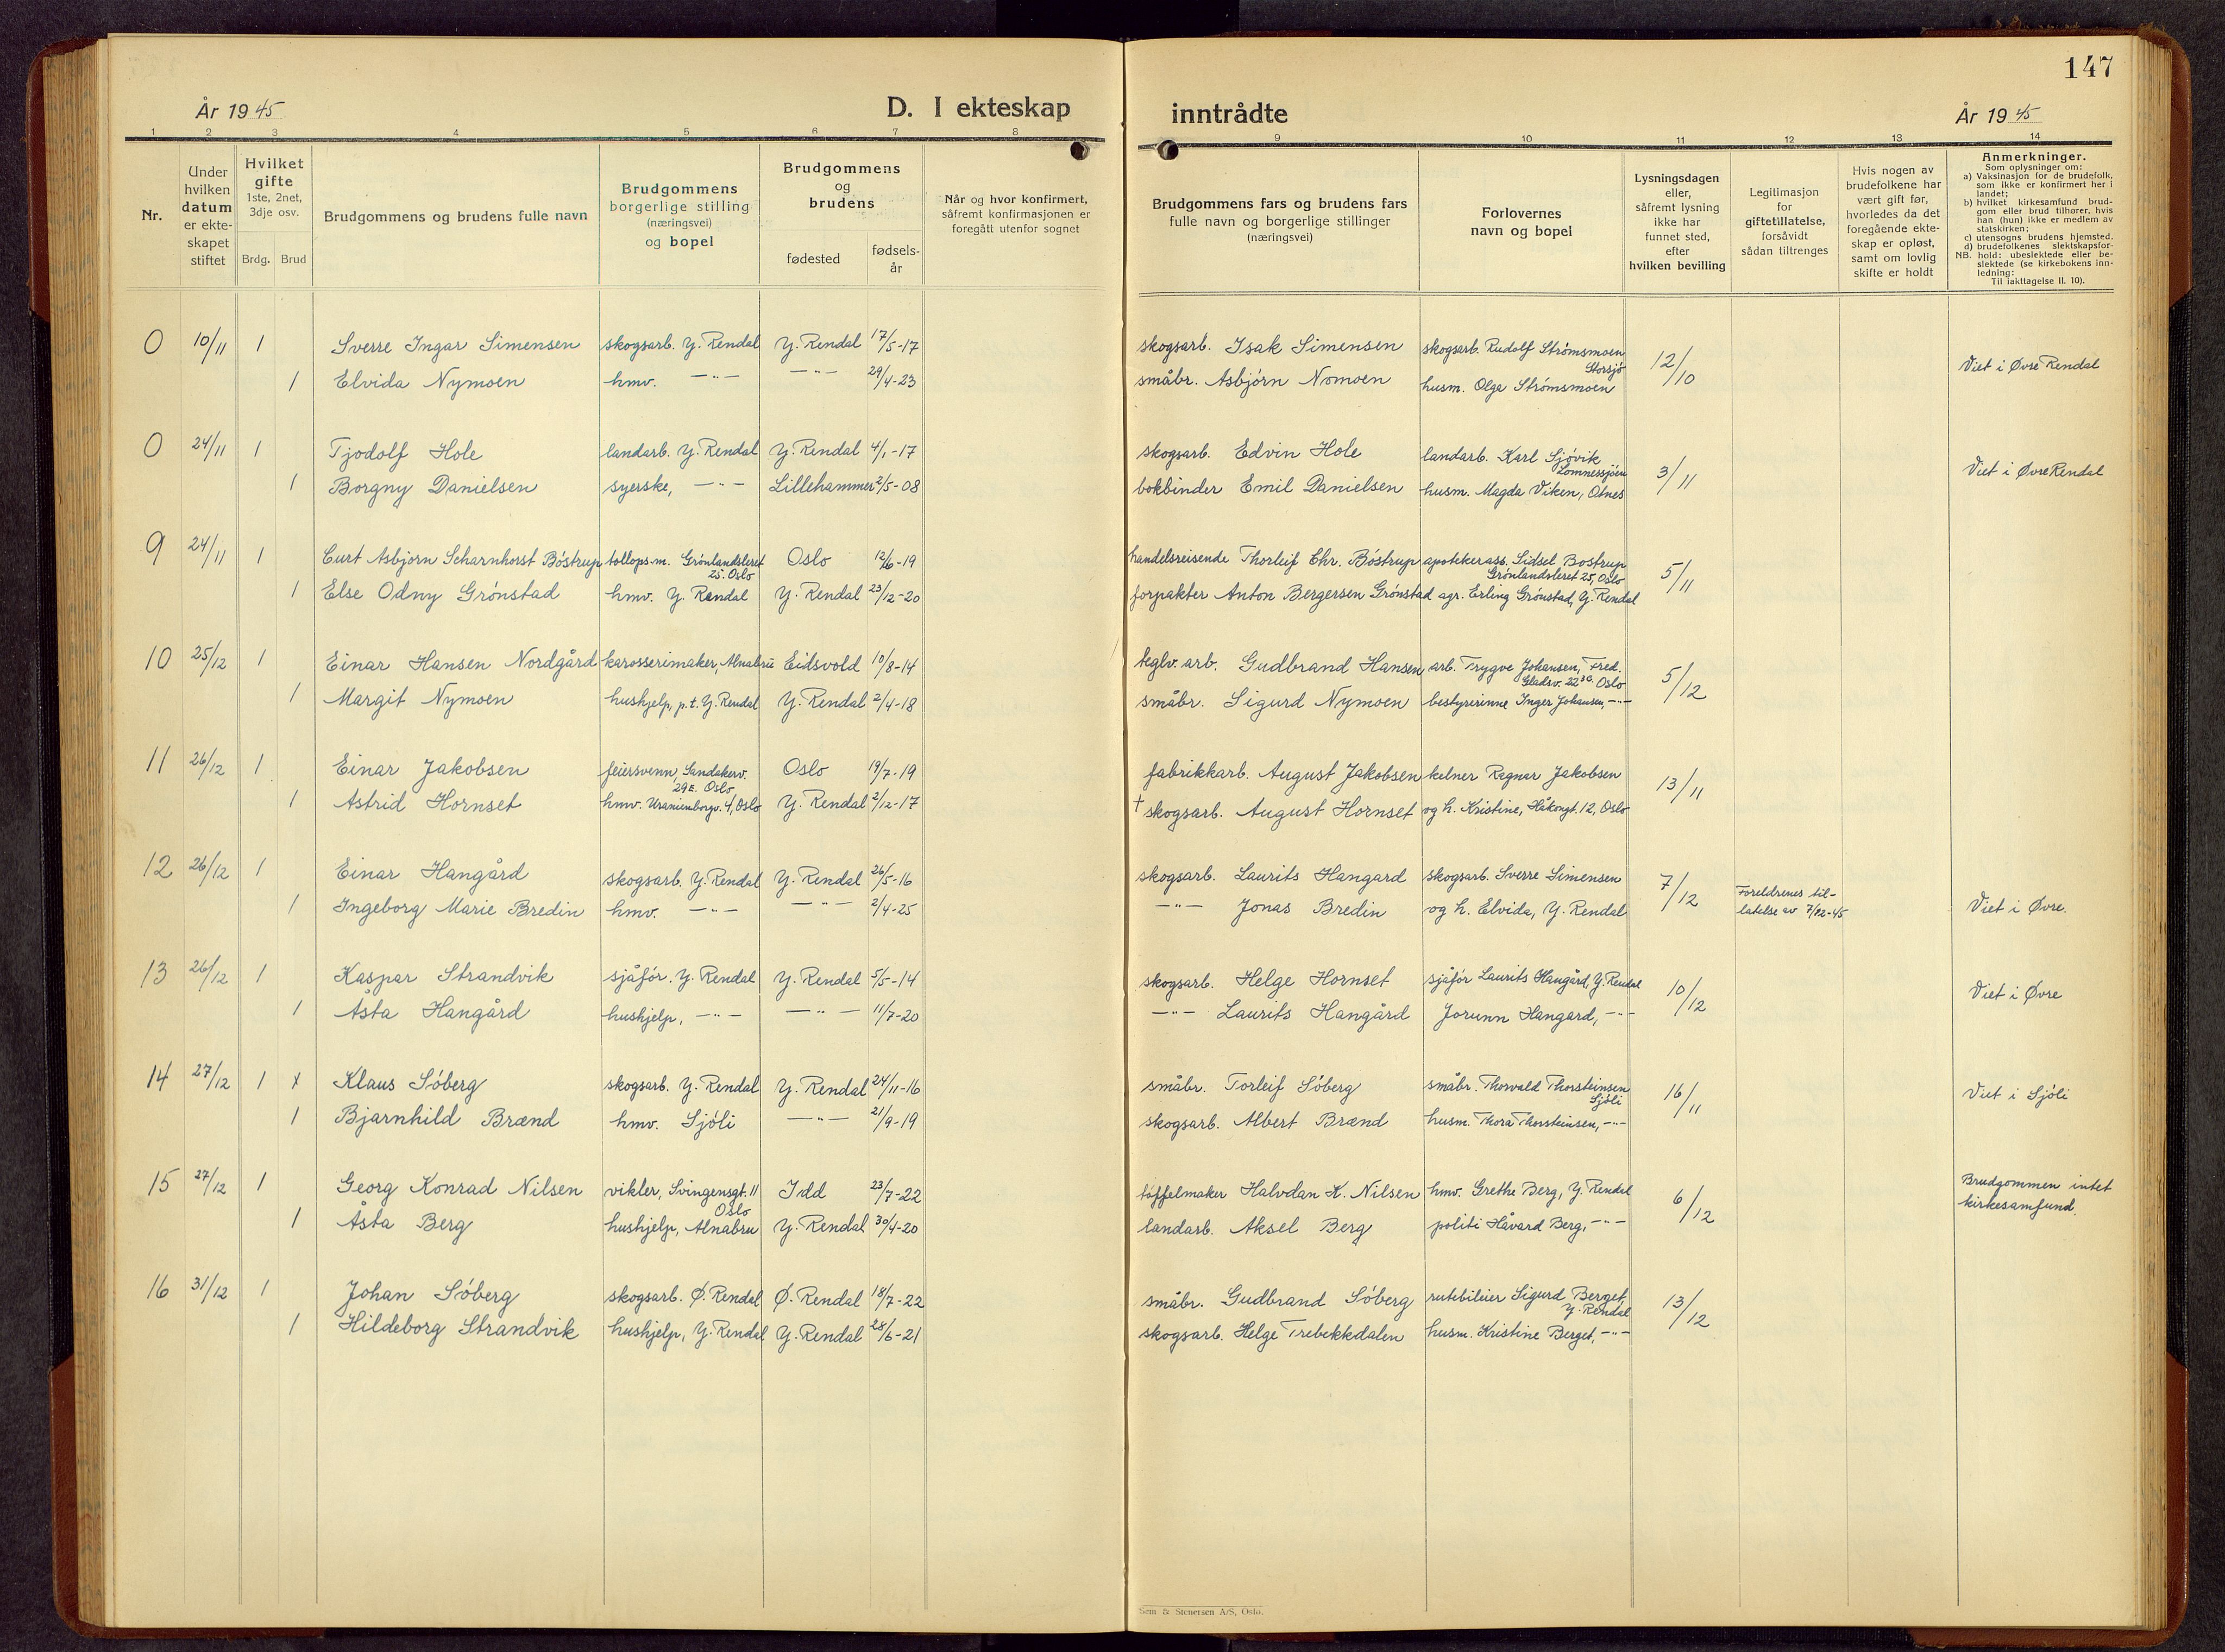 147
År 1945
D. I ekteskap
inntrådte
År 1945
1 2 3 4 5 6 7 8
9 10 11 12 13 14
Nr.
Under
hvilken
datum
er ekte-
skapet
stiftet
Hvilket
gifte
1ste, 2net,
3dje osv.
Brdg. Brud
Brudgommens og brudens fulle navn
Brudgommens
borgerlige stilling
(næringsvei)
og bopel
Brudgommens
og
brudens
fødested
fødsels-
år
Når og hvor konfirmert,
såfremt konfirmasjonen er
foregått utenfor sognet
Brudgommens fars og brudens fars
fulle navn og borgerlige stillinger
(næringsvei)
Forlovernes
navn og bopel
Lysningsdagen
eller,
såfremt lysning
ikke har
funnet sted,
efter
hvilken bevilling
Legitimasjon
for
giftetillatelse,
forsåvidt
sådan tiltrenges
Hvis nogen av
brudefolkene har
vært gift før,
hvorledes da det
foregående ekte-
skap er opløst,
samt om lovlig
skifte er holdt
Anmerkninger.
Som oplysninger om:
a) Vaksinasjon for de brudefolk,
som ikke er konfirmert her i
landet;
b) hvilket kirkesamfund brud-
gom eller brud tilhører, hvis
han (hun) ikke er medlem av
statskirken;
c) utensogns brudens hjemsted.
d) brudefolkenes slektskapsfor-
NB. hold: ubeslektede eller be-
slektede (se kirkebokens inn-
ledning:
Til iakttagelse II. 10).
0 10/11 1 Sverre Ingar Simensen skogsarb. Y. Rendal Y. Rendal 17/5-17 skogsarb. Isak Simensen skogsarb. Rudolf Strømsmoen
Storsjø 12/10 Viet i Øvre Rendal
1 Elvida Nymoen hmv. -"- -"- 29/4-23 småbr. Asbjörn Nømoen husm. Olga Strømsmoen
0 24/11 1 Tjodolf Hole landarb. Y. Rendal Y. Rendal 4/1-17 skogsarb. Edvin Hole landarb. Karl Sjövik
Lomnessjöen 3/11 Viet i Øvre Rendal
1 Borgny Danielsen syerske, -"- Lillehammer 2/5-08 bokbinder Emil Danielsen husm. Magda Viken, Otnes
9 24/11 1 Curt Asbjörn Scharnhorst Böstrup tollops.m. Grönlandsleret Oslo 12/6-19 handelsreisende Thorleif Chr. Böstrup apotekerass. Sidsel Bostrup
25. Oslo Grönlandsleret 25, Oslo 5/11
1 Else Odny Grönstad hmv. Y. Rendal Y. Rendal 23/12-20 forpakter Anton Bergersen Grönstad agr. Erling Grönstad, Y. Rendal
10 25/12 1 Einar Hansen Nordgård karosserimaker, Alnabru Eidsvold 10/8-14 teglv. arb. Gudbrand Hansen arb. Trygve Johansen, Fred.
Gladsv. 22 Oslo 5/12
1 Margit Nymoen hushjelp, p.t. Y. Rendal Y. Rendal 2/4-18 småbr. Sigurd Nymoen bestyrerinne Inger Johansen, -"-
11 26/12 1 Einar Jakobsen feiersvenn, Sandakerv. Oslo 19/7-19 fabrikkarb. August Jakobsen kelner Ragnar Jakobsen
29E. Oslo 13/11
1 Astrid Hornset hmv. Uranienborgv. 4, Oslo Y. Rendal 2/12-17 † skogsarb. August Hornset og h. Kristine, Håkongt. 12, Oslo
12 26/12 1 Einar Hangård skogsarb. Y. Rendal Y. Rendal 26/5-16 skogsarb. Laurits Hangard skogsarb. Sverre Simensen 7/12 Foreldrenes til-
latelse av 7/12-45 Viet i Øvre.
1 Ingeborg Marie Bredin hmv. -"- -"- 2/4-25 -"- Jonas Bredin og h. Elvida, Y. Rendal
13 26/12 1 Kaspar Strandvik sjåför. Y. Rendal Y. Rendal 5/5-14 skogsarb. Helge Hornset sjåför Laurits Hangård, Y. Rendal 10/12 Viet i Øvre
1 Åsta Hangård hushjelp, -"- -"- 11/7-20 -"- Laurits Hangård Jorunn Hangard, -"-
14 27/12 1 x Klaus Söberg skogsarb. Y. Rendal Y. Rendal 24/11-16 småbr. Torleif Söberg småbr. Thorvald Thorsteinsen
Sjöli 16/11 Viet i Sjöli
1 Bjarnhild Brænd hmv. Sjöli -"- 21/9-19 skogsarb. Albert Brænd husm. Thora Thorsteinsen, -"-
15 27/12 1 Georg Konrad Nilsen vikler, Svingensgt. 11 Idd 23/7-22 töffelmaker Halvdan K. Nilsen hmv. Grethe Berg, Y. Rendal 6/12 Brudgommen intet
Oslo kirkesamfund.
1 Åsta Berg hushjelp, Alnabru Y. Rendal 30/4-20 landarb. Aksel Berg politi Håvard Berg, -"-
16 31/12 1 Johan Söberg skogsarb. Ø. Rendal Ø. Rendal 18/7-22 småbr. Gudbrand Söberg rutebileier Sigurd Berget,
Y. Rendal 13/12
1 Hildeborg Strandvik hushjelp, Y. Rendal Y. Rendal 28/6-21 skogsarb. Helge Trebekkdalen husm. Kristine Berget, -"-
Sem & Stenersen A/S, Oslo.